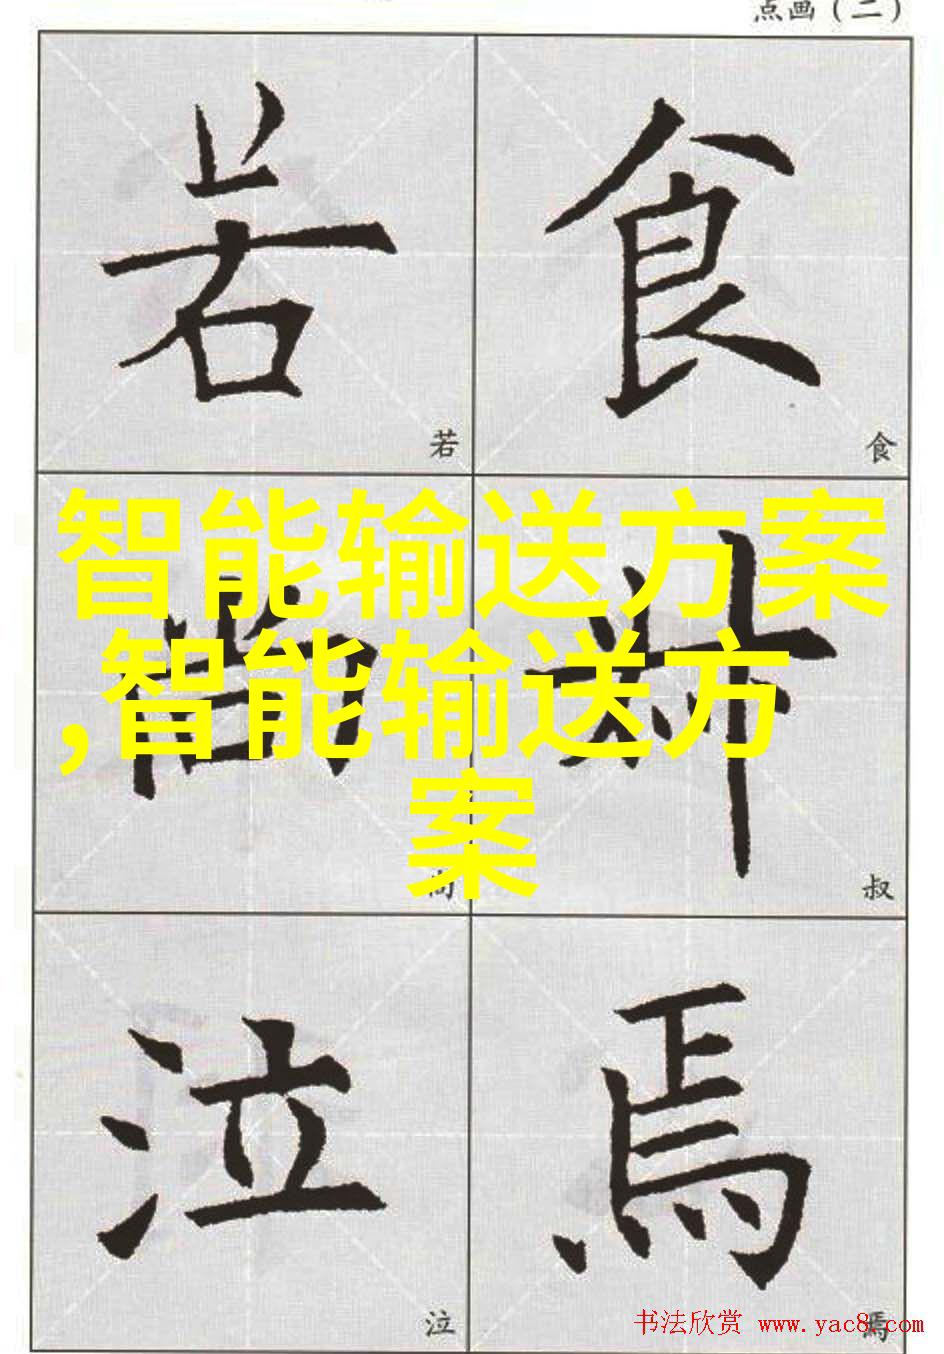 点画(二)
若 食
若 食
智能输送方案
,智能输送方
案
尚 叔
尚 叔
泣 焉
泣 焉
书法欣赏 www.yac8.com